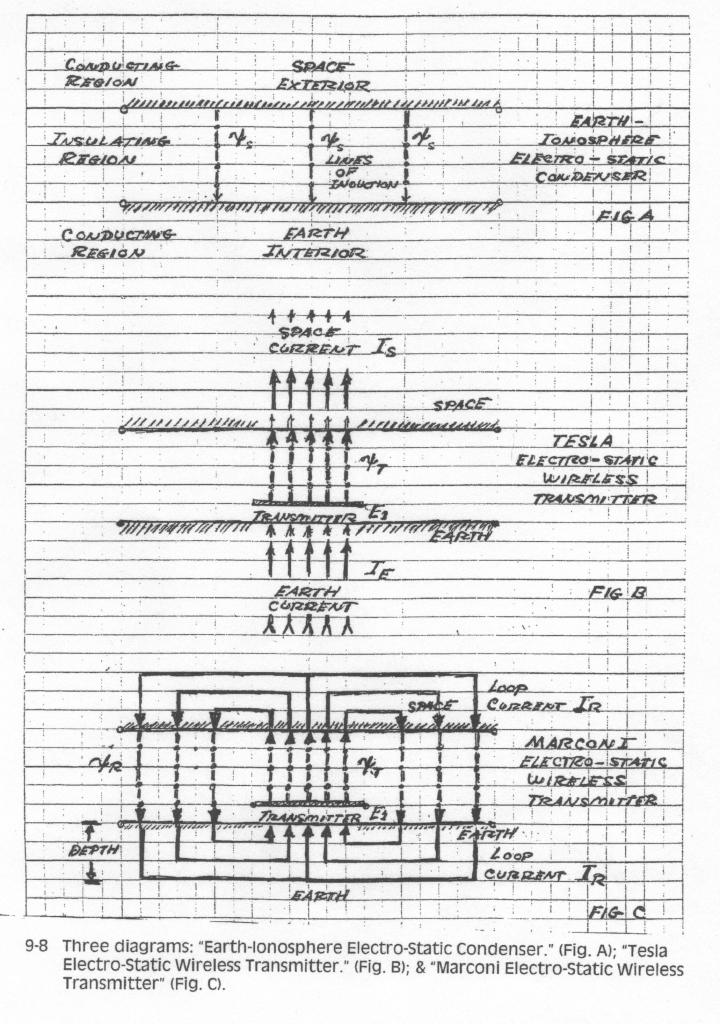 CONDUCTING
REGION
SPACE
EXTERIOR
INSULATING
REGION
ψs
ψs
ψs
LINES
OF
INDUCTION
EARTH –
IONOSPHERE
ELECTRO – STATIC
CONDENSER
FIG A
CONDUCTING
REGION
EARTH
INTERIOR
SPACE
CURRENT IS
SPACE
ψT
TESLA
ELECTRO – STATIC
WIRELESS
TRANSMITTER
TRANSMITTER E3
EARTH
IE
EARTH
CURRENT
FIG B
LOOP
CURRENT IR
SPACE
ψR
ψT
MARCONI
ELECTRO – STATIC
WIRELESS
TRANSMITTER
TRANSMITTER E3
EARTH
DEPTH
LOOP
CURRENT IR
EARTH
FIG C
9-8 Three diagrams: "Earth-Ionosphere Electro-Static Condenser." (Fig. A); "Tesla
Electro-Static Wireless Transmitter." (Fig. B); & "Marconi Electro-Static Wireless
Transmitter" (Fig. C).